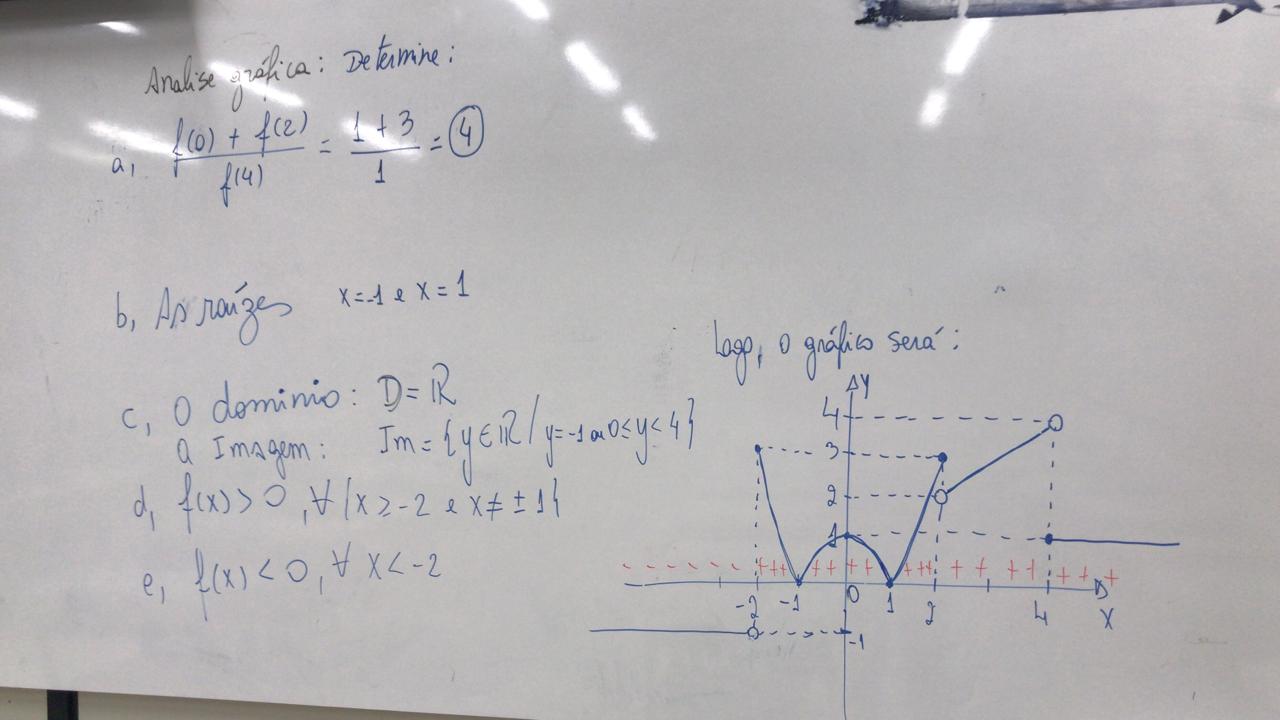 Analise gráfica: Determine:
a, f(0) + f(2) / f(4) = 1 + 3 / 1 = 4
b, As raízes x=-1 e x = 1
c, O dominio: D = ℝ
a Imagem: Im = {y ∈ ℝ / y=-1 ou 0≤y<4}
d, f(x) > 0, ∀ {x ≥ -2 e x ≠ ± 1}
e, f(x) < 0, ∀ x < -2
Logo, o gráfico será:
Y
4
3
2
1
- - - - - - - - + + + + + + + + + + + + + + + + +
-2 -1 0 1 2 4 X
-1